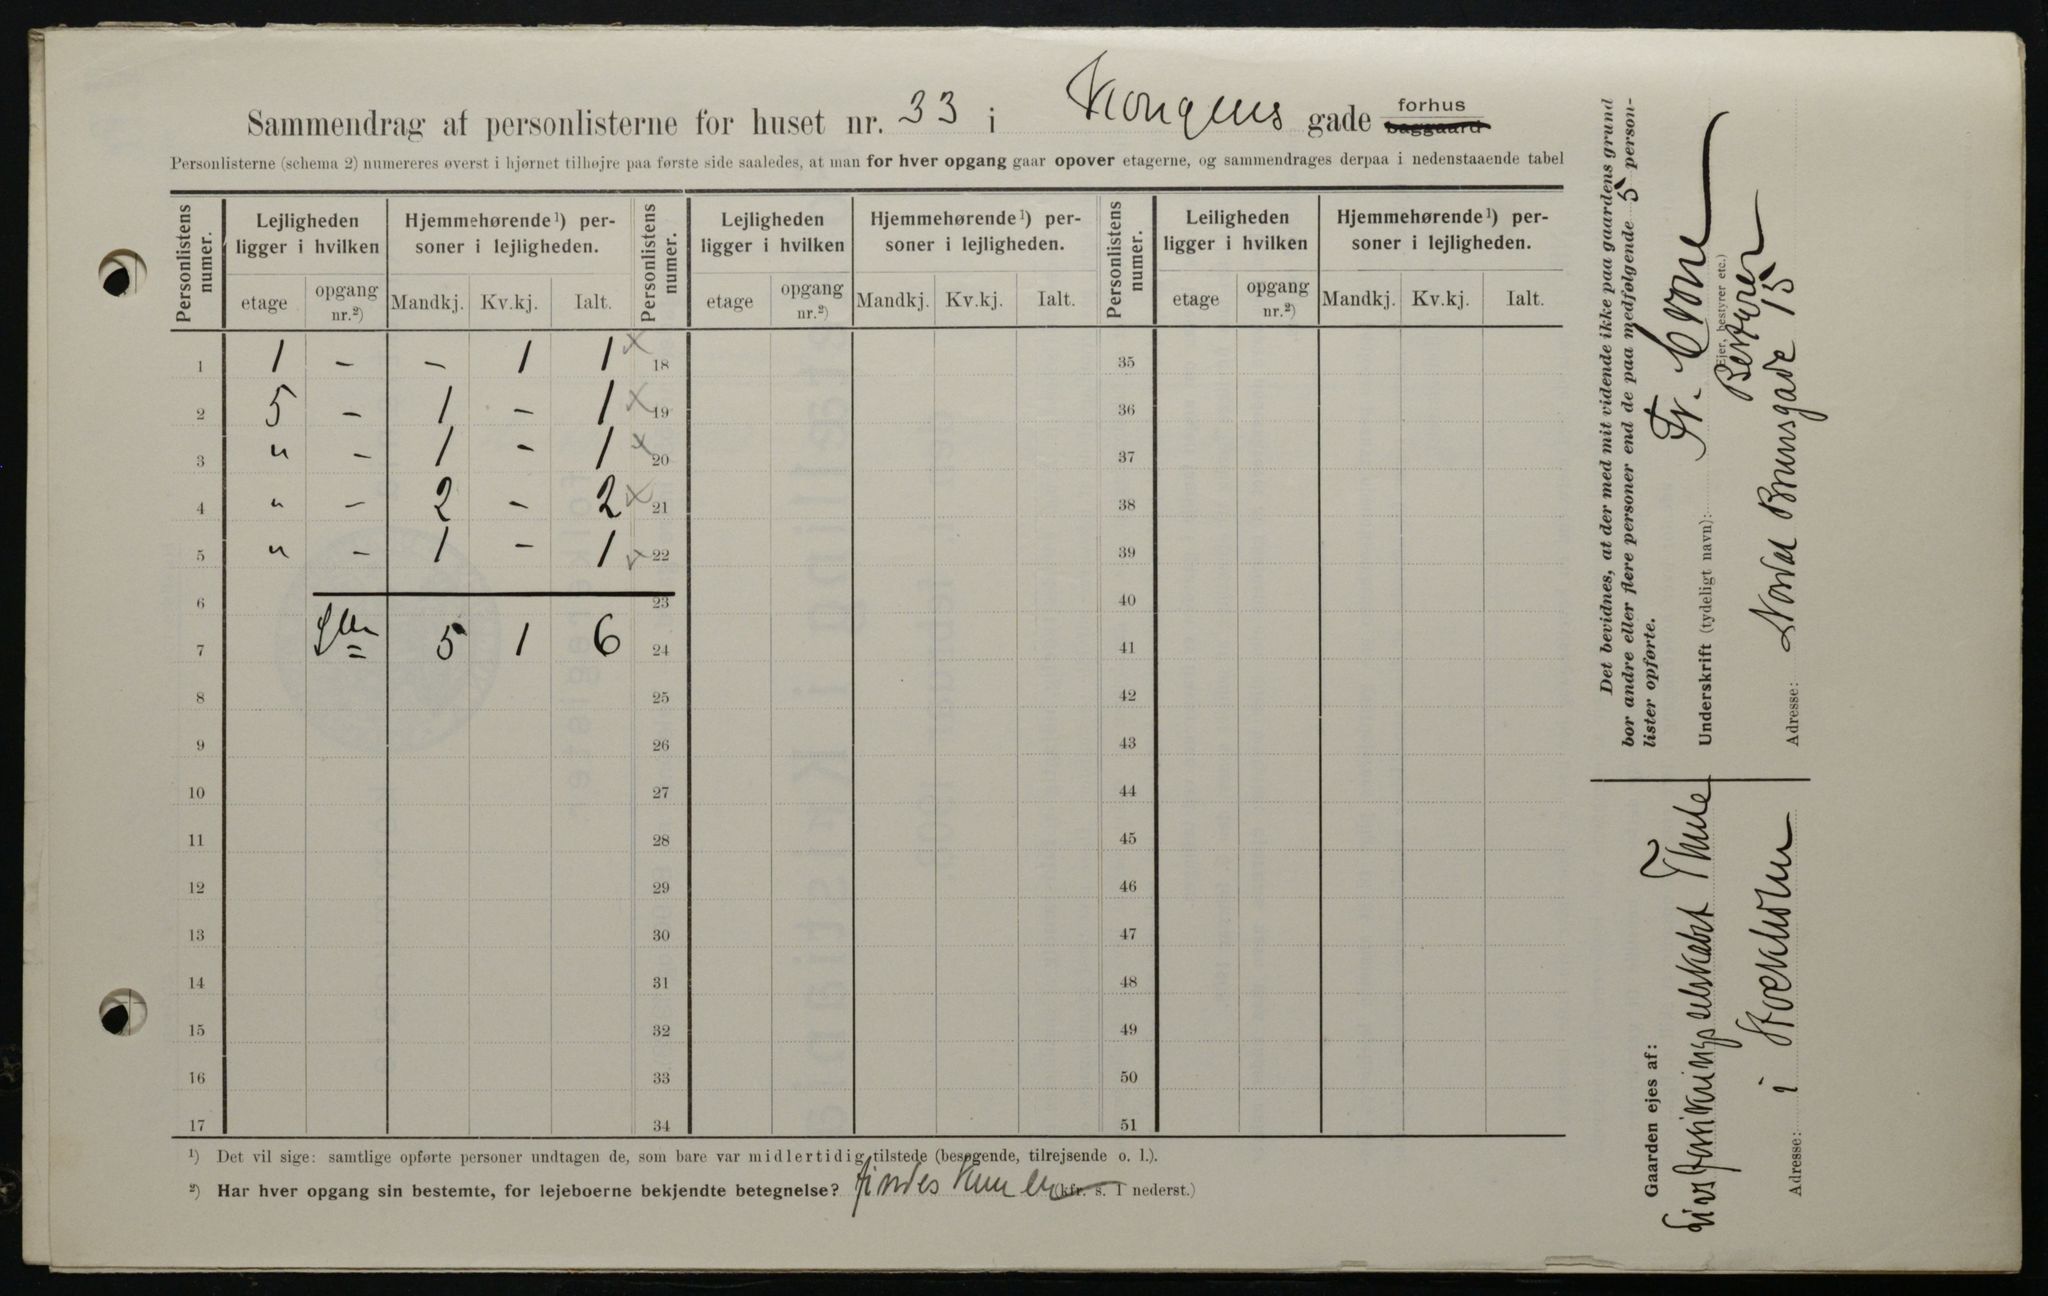 Sammendrag af personlisterne for huset nr. 33 i Kongens gade forhus baggaard
Personlisterne (schema 2) numereres øverst i hjørnet tilhøjre paa første side saaledes, at man for hver opgang gaar opover etagerne, og sammendrages derpaa i nedenstaaende tabel
Personlistens numer. Lejligheden ligger i hvilken Hjemmehørende¹) personer i lejligheden. Personlistens numer. Lejligheden ligger i hvilken Hjemmehørende¹) personer i lejligheden. Personlistens numer. Leiligheden ligger i hvilken Hjemmehørende¹) personer i lejligheden.
etage opgang nr.²) Mandkj. Kv.kj. Ialt. etage opgang nr.²) Mandkj. Kv.kj. Ialt. etage opgang nr.²) Mandkj. Kv.kj. Ialt.
1 1 – – 1 1 × 18 35
2 5 – 1 – 1 × 19 36
3 " – 1 – 1 × 20 37
4 " – 2 – 2 × 21 38
5 " – 1 – 1 × 22 39
6 23 40
7 5 1 6 24 41
8 25 42
9 26 43
10 27 44
11 28 45
12 29 46
13 30 47
14 31 48
15 32 49
16 33 50
17 34 51
¹) Det vil sige: samtlige opførte personer undtagen de, som bare var midlertidig tilstede (besøgende, tilrejsende o. l.).
²) Har hver opgang sin bestemte, for lejeboerne bekjendte betegnelse? findes kun en (kfr. s. 1 nederst.)
Det bevidnes, at der med mit vidende ikke paa gaardens grund
bor andre eller flere personer end de paa medfølgende 5 person-
lister opførte.
Underskrift (tydeligt navn): Fr. Crone
(Ejer, bestyrer etc.)
Bestyrer
Adresse: Nordal Brunsgade 15
Gaarden ejes af:
Livsforsikringsselskabet Thule
Adresse: i Stockholm